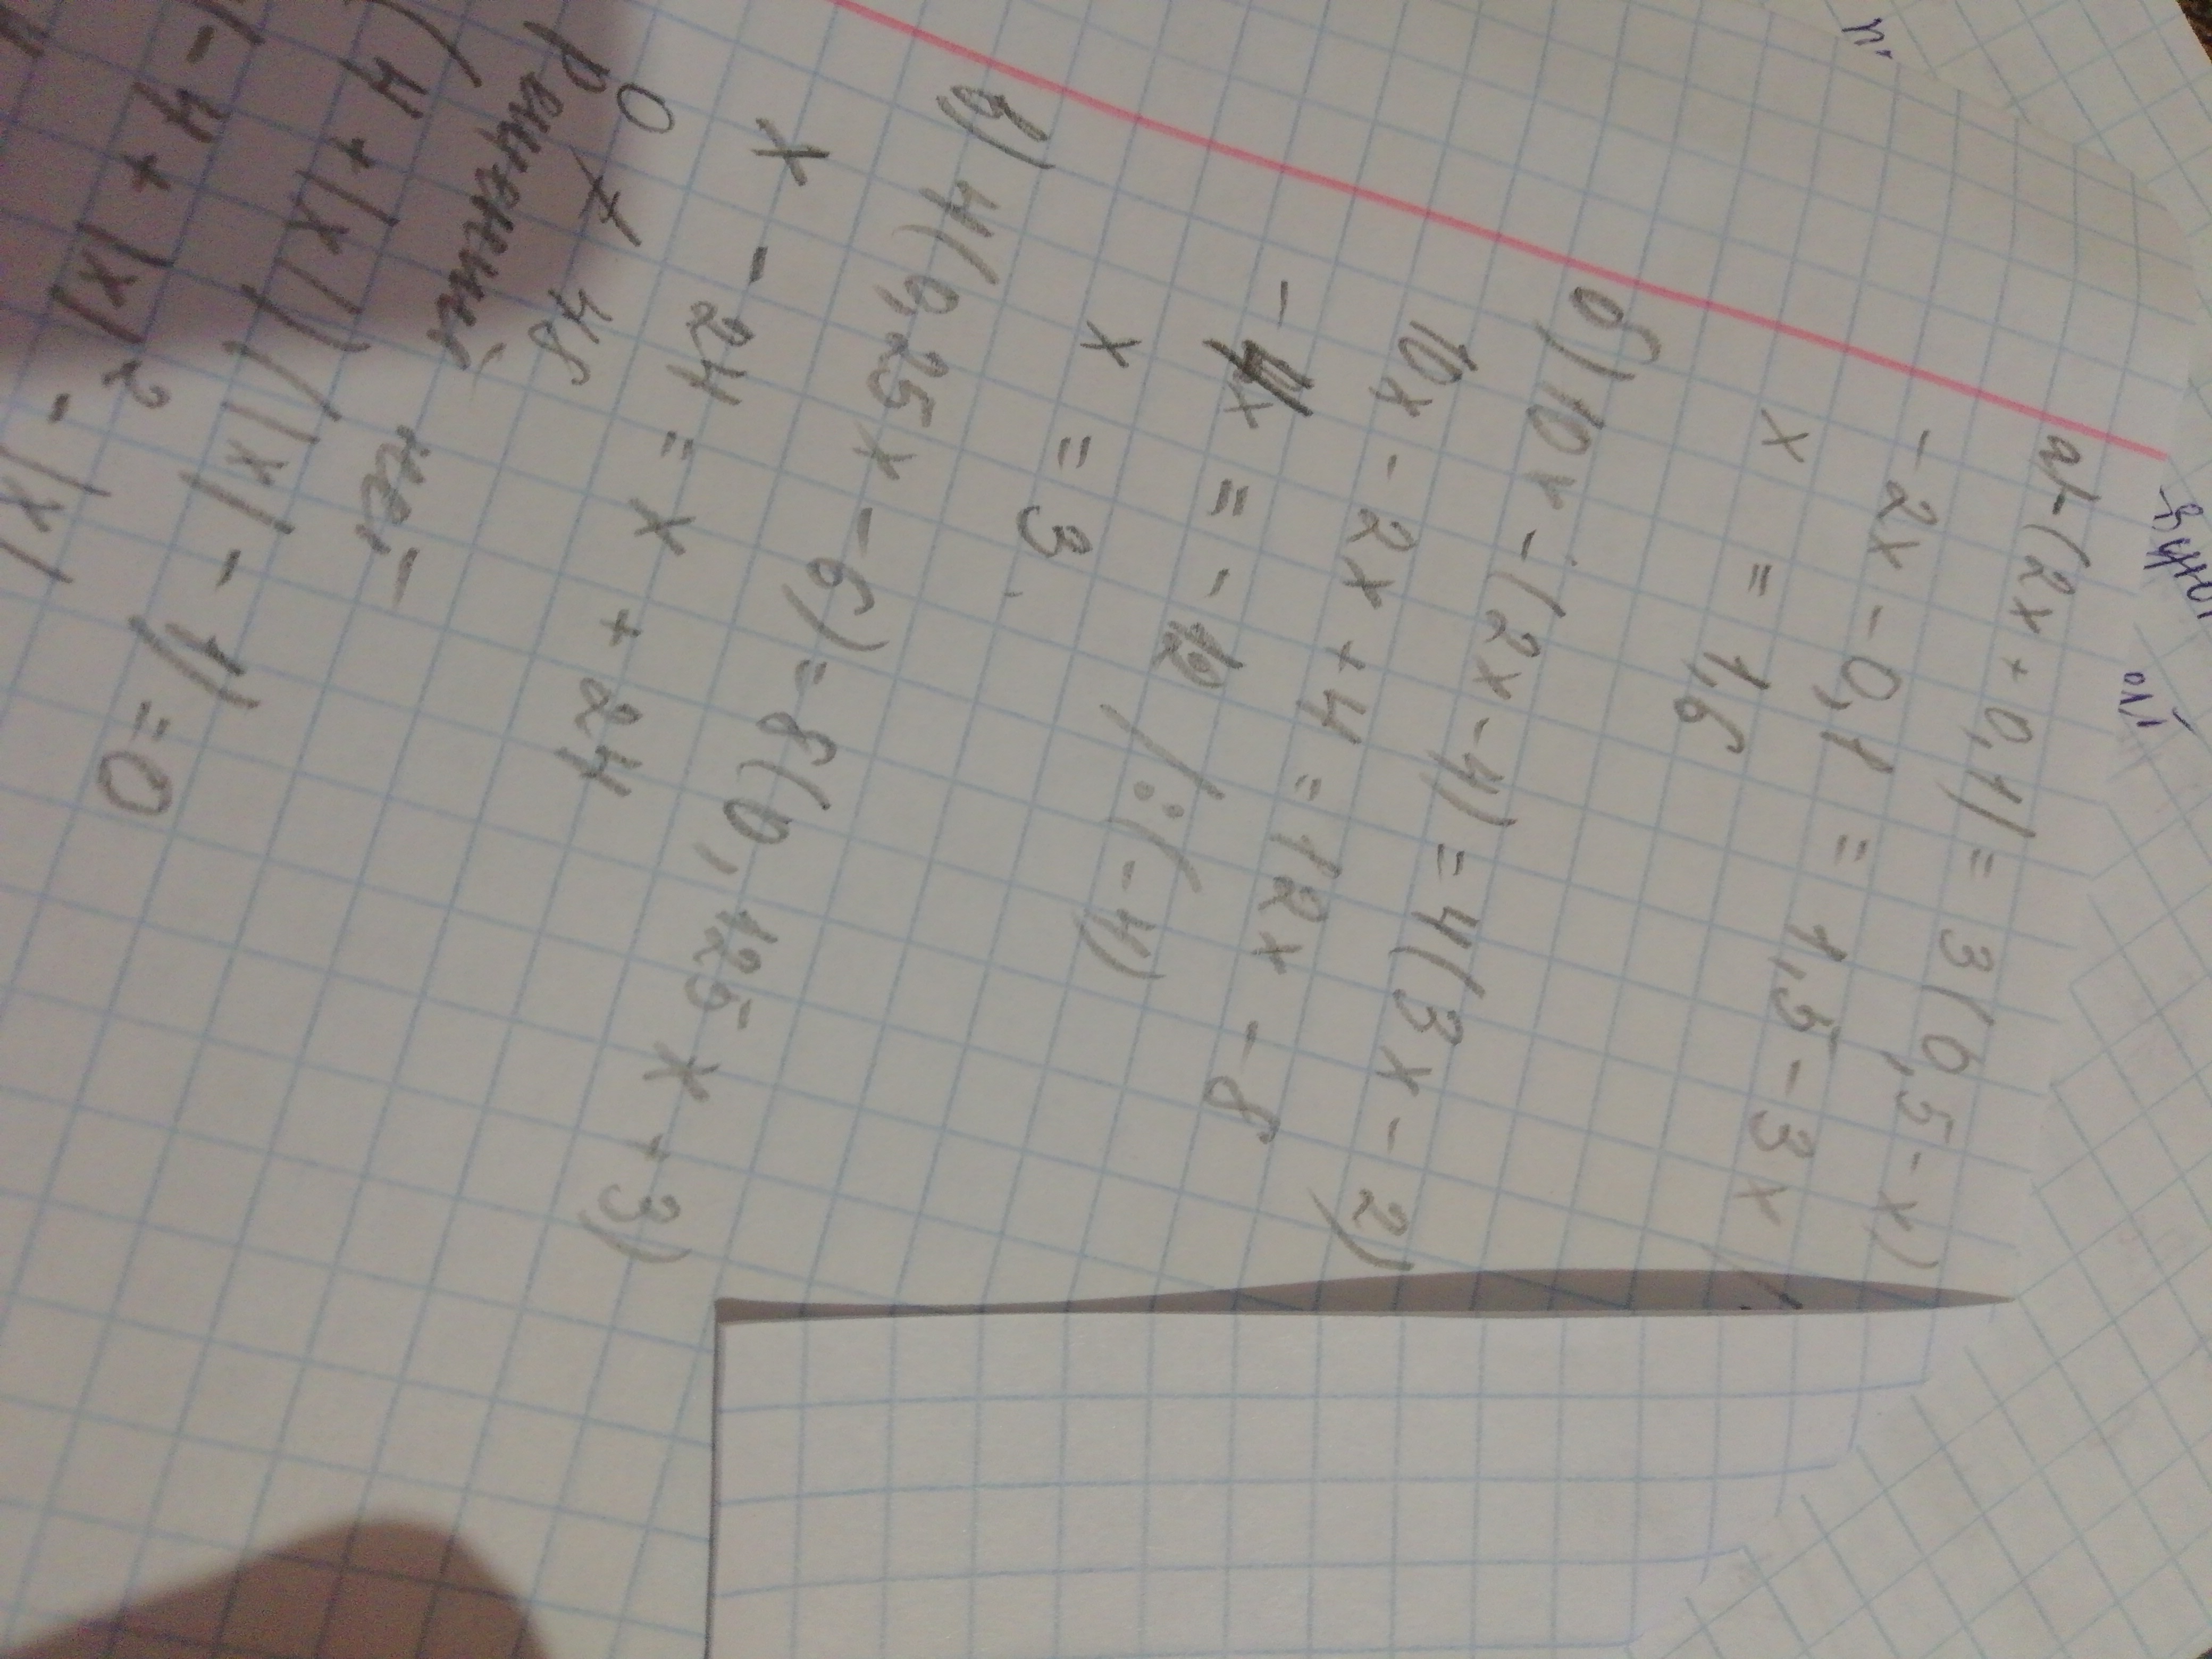 а) -(2x + 0,1) = 3(0,5 - x)
-2x - 0,1 = 1,5 - 3x
x = 1,6
б) 10x - (2x - 4) = 4(3x - 2)
10x - 2x + 4 = 12x - 8
-4x = -12 | :(-4)
x = 3
в) 4(0,25x - 6) = 8(0,125x + 3)
x - 24 = x + 24
0 ≠ 48
Решений нет
(4 + |x|)(|x| - 1) = 0